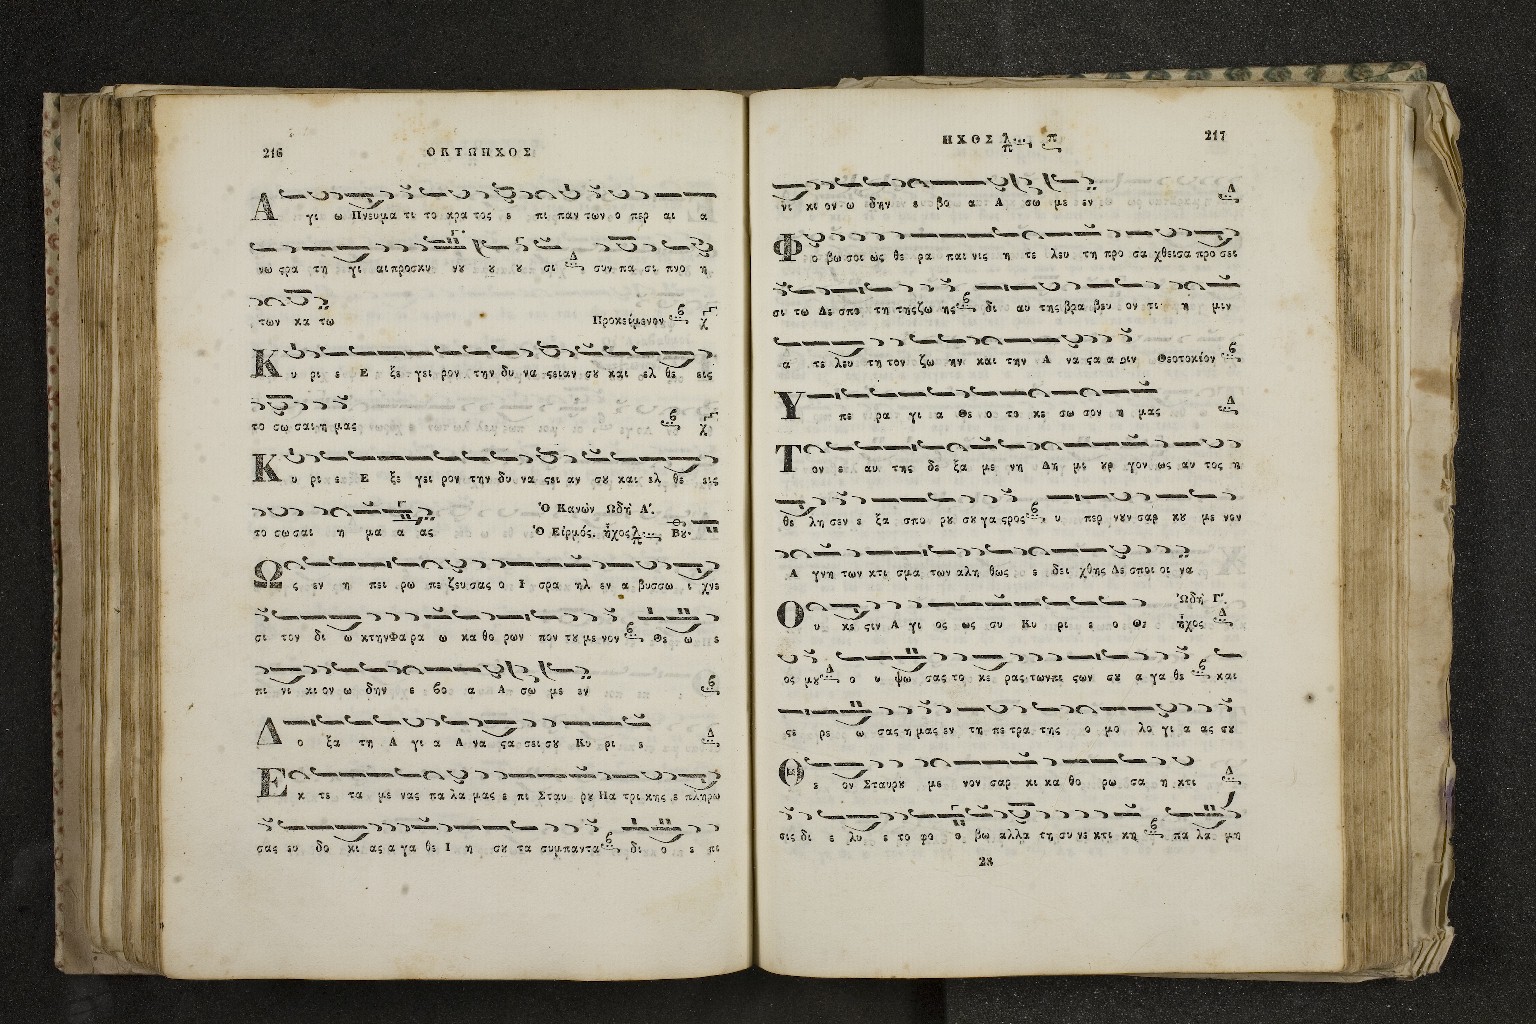 216
ΟΚΤΩΗΧΟΣ
Α γι ω Πνευμα τι το κρα τος ε πι παν των ο περ αι α
νω ςρα τη γι αι προσκυ νȣ ȣ ȣ σι συν πα σι πνο η
των κα τω Προκείμενον
Κ υ ρι ε Ε ξε γει ρον την δυ να ςειαν σȣ και ελ θε εις
το σω σαι η μας
Κ υ ρι ε Ε ξε γει ρον την δυ να ςει αν σȣ και ελ θε εις
Ὁ Κανών Ωδὴ Α΄.
το σω σαι η μα α ας Ὁ Εἱρμός. ἦχος Βȣ.
Ω ς εν η πει ρω πε ζευ σας ο Ι σρα ηλ εν α βυσσω ι χνε
σι τον δι ω κτην Φα ρα ω κα θο ρων πον τȣ με νον Θε ω ε
πι νι κι ον ω δην ε βο α Α σω με εν
Δ ο ξα τη Α γι α Α να ςα σει σȣ Κυ ρι ε
Ε κ τε τα με νας πα λα μας ε πι Σταυ ρȣ Πα τρι κης ε πληρω
σας ευ δο κι ας α γα θε Ι η σȣ τα συμπαντα δι ο ε πι
ΗΧΟΣ
217
νι κι ον ω δην ε βο α Α σω με εν
Φ ο βω σοι ως θε ρα παι νις η τε λευ τη προ σα χθεισα προ σει
σι τω Δε σπο τη της ζω ης δι αυ της βρα βευ ον τι η μιν
α τε λευ τη τον ζω ην και την Α να ςα α σιν Θεοτοκίον
Υ πε ρα γι α Θε ο το κε σω σον η μας
Τ ον ε αυ της δε ξα με νη Δη μι ȣρ γον ως αυ τος η
θε λη σεν ε ξα σπο ρȣ σȣ γα ςρος υ περ νȣν σαρ κȣ με νον
Α γνη των κτι σμα των αλη θως ε δει χθης Δε σποι οι να
Ὠδὴ Γ΄.
Ο υ κε ςιν Α γι ος ως συ Κυ ρι ε ο Θε ἦχος
ος μȣ ο υ ψω σας το κε ρας των πι ςων σȣ α γα θε και
ςε ρε ω σας η μας εν τη πε τρα της ο μο λο γι α ας σȣ
Θ ε ον Σταυρȣ με νον σαρ κι κα θο ρω σα η κτι
σις δι ε λυ ε το φο ο βω αλλα τη συ νε κτι κη πα λα μη
28